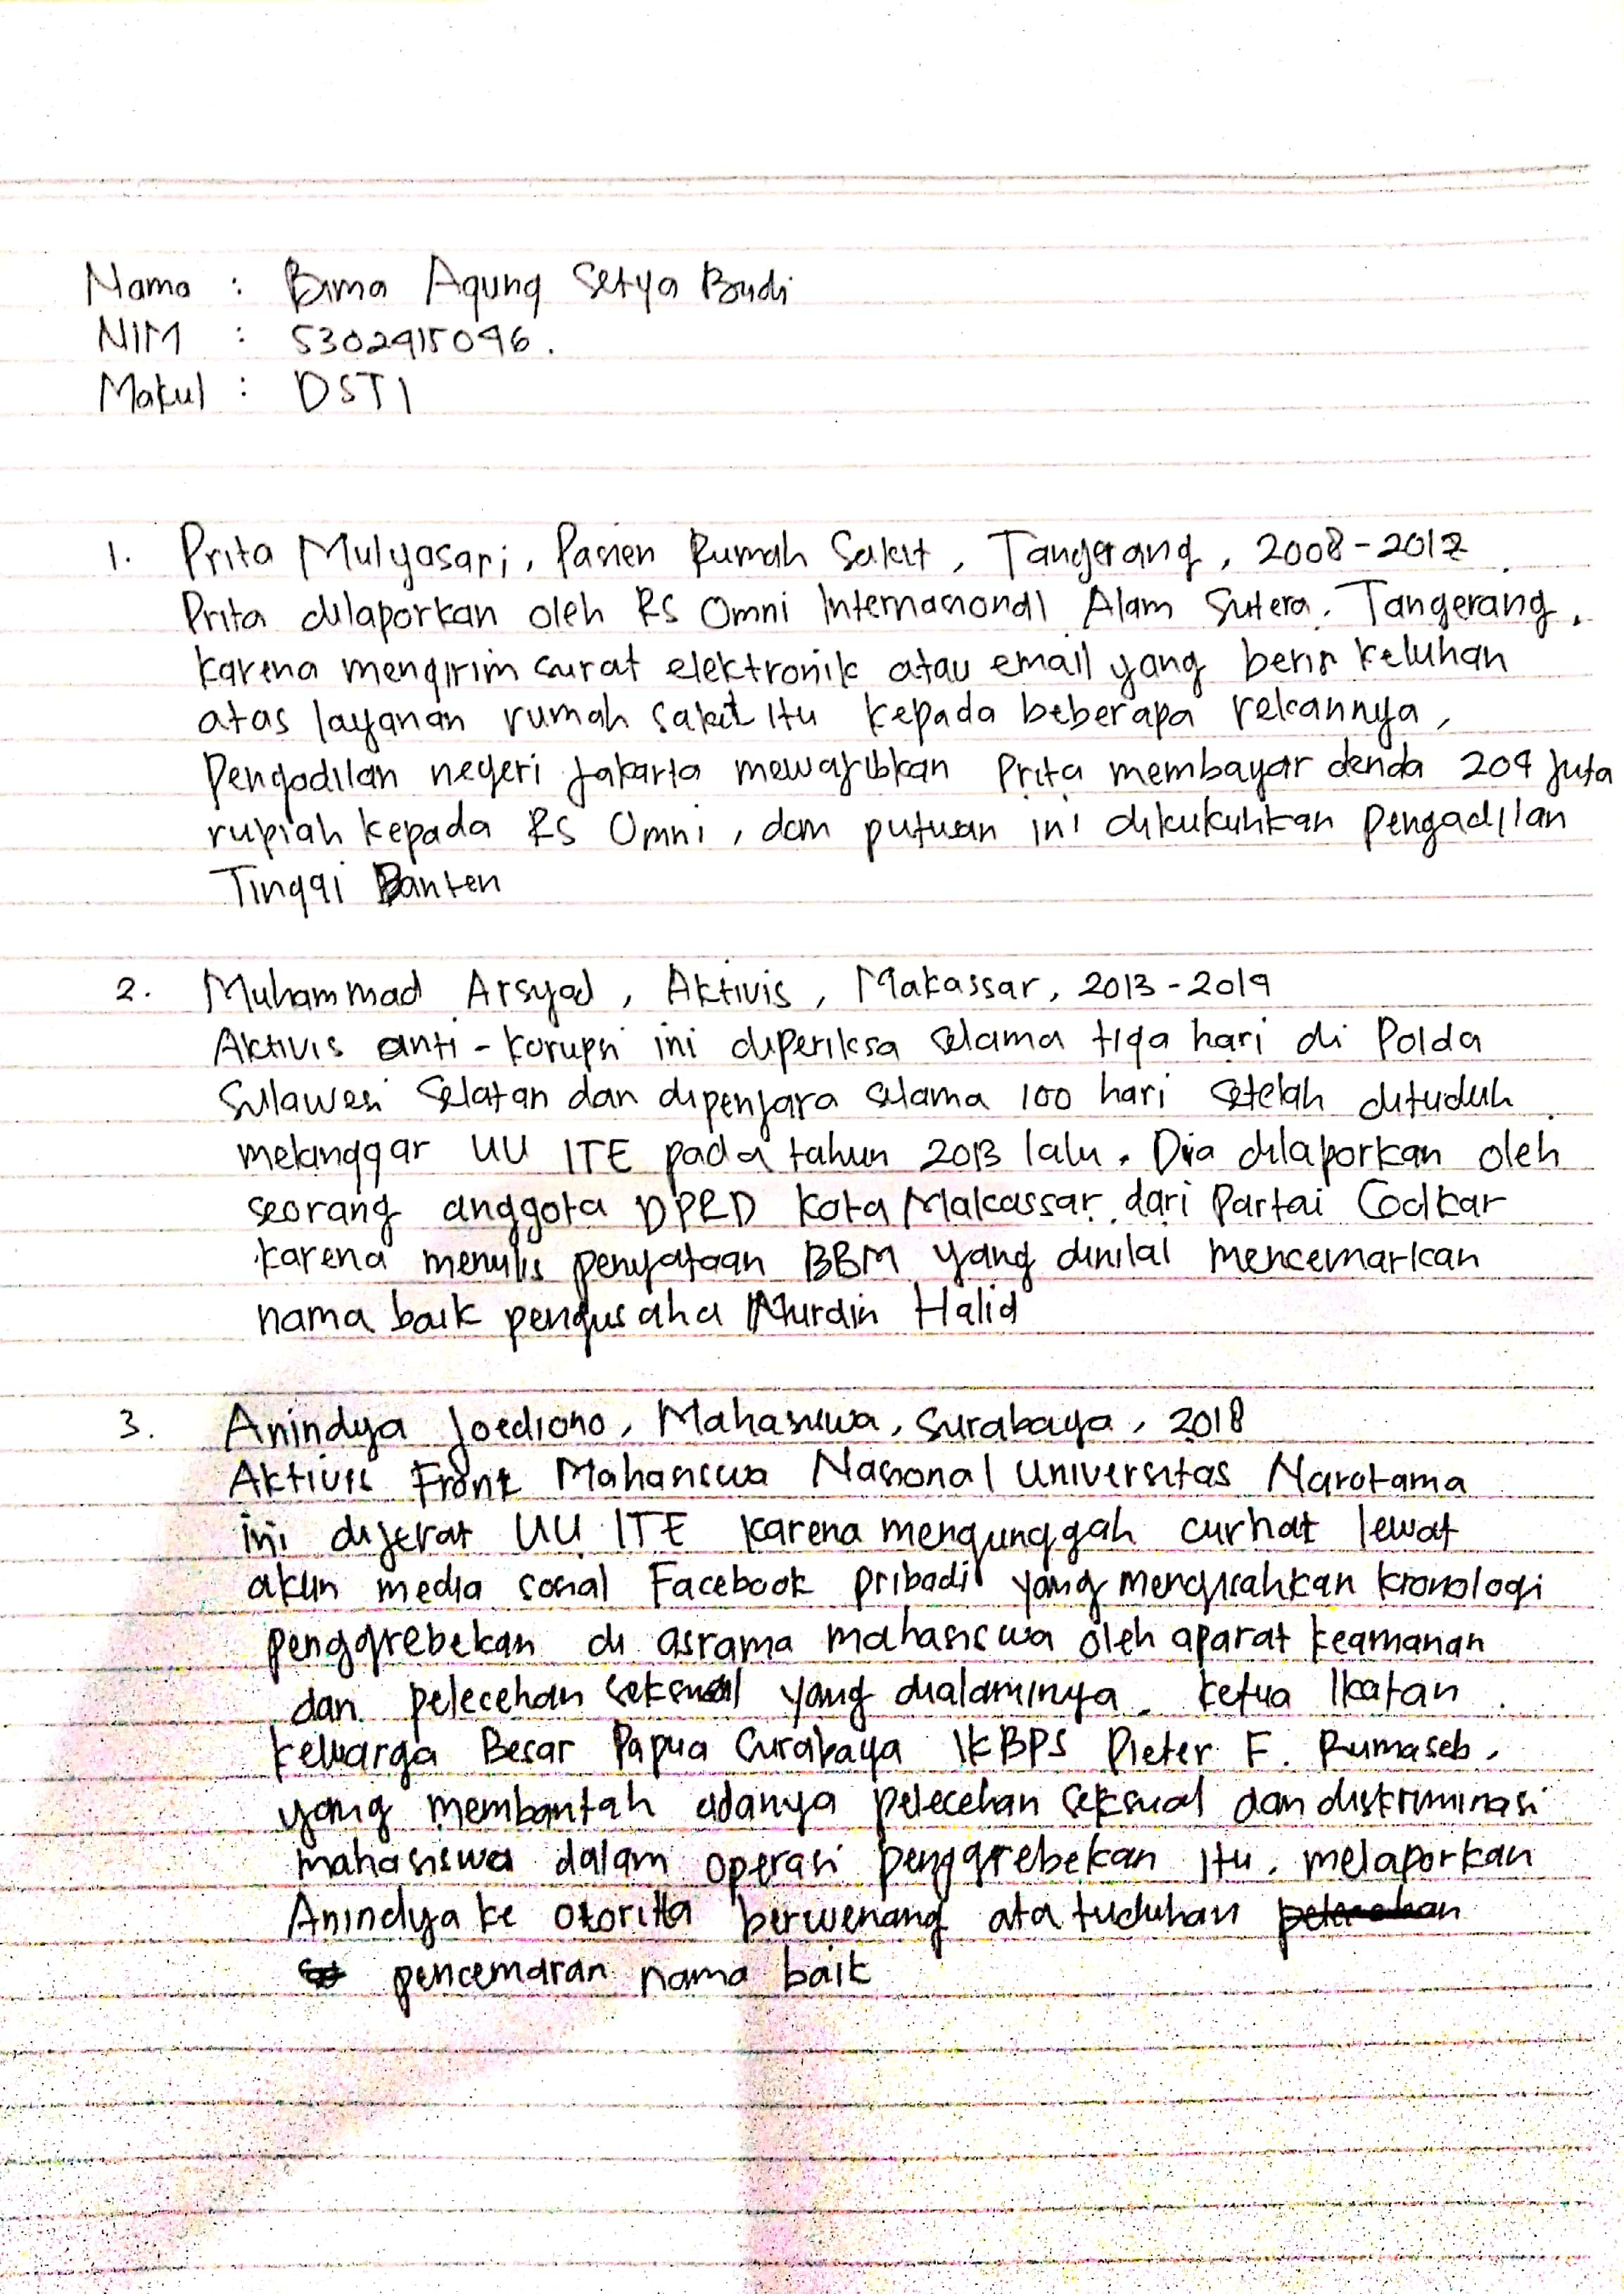 Nama : Bima Agung Setya Budi
NIM : 5302415046.
Makul : DSTI
1. Prita Mulyasari, Pasien Rumah Sakit, Tangerang, 2008-2012
Prita dilaporkan oleh RS Omni Internasional Alam Sutera, Tangerang,
karena mengirim surat elektronik atau email yang berisi keluhan
atas layanan rumah sakit itu kepada beberapa rekannya,
Pengadilan negeri Jakarta mewajibkan Prita membayar denda 204 juta
rupiah kepada RS Omni, dan putusan ini dikukuhkan Pengadilan
Tinggi Banten
2. Muhammad Arsyad, Aktivis, Makassar, 2013-2019
Aktivis anti-korupsi ini diperiksa selama tiga hari di Polda
Sulawesi Selatan dan dipenjara selama 100 hari setelah dituduh
melanggar UU ITE pada tahun 2013 lalu. Dia dilaporkan oleh
seorang anggota DPRD Kota Makassar dari Partai Golkar
karena menulis penyataan BBM yang dinilai mencemarkan
nama baik pengusaha Nurdin Halid
3. Anindya Joediono, Mahasiswa, Surabaya, 2018
Aktivis Front Mahasiswa Nasional Universitas Narotama
ini dijerat UU ITE karena mengunggah curhat lewat
akun media sosial Facebook pribadi yang mengisahkan kronologi
penggrebekan di asrama mahasiswa oleh aparat keamanan
dan pelecehan seksual yang dialaminya. Ketua Ikatan
Keluarga Besar Papua Surabaya IKBPS Pieter F. Rumaseb,
yang membantah adanya pelecehan seksual dan diskriminasi
mahasiswa dalam operasi penggrebekan itu, melaporkan
Anindya ke otorita berwenang ata tuduhan
pencemaran nama baik